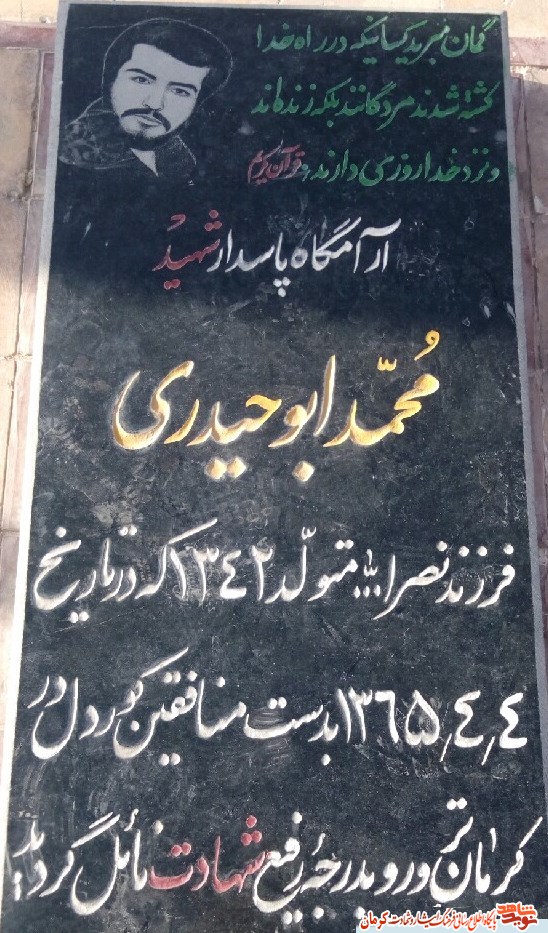 گمان مبرید کسانیکه در راه خدا
کشته شدند مردگانند بلکه زنده اند
و نزد خدا روزی دارند، قرآن کریم
آرامگاه پاسدار شهید
مُحمّد ابوحیدری
فرزند نصرا... متولّد ۱۳٤۲ که در تاریخ
٤٫٤٫۱۳٦۵ بدست منافقین کور دل در
کرمان ترور و بدرجهٔ رفیع شهادت نائل گردید
نوید شاهد پایگاه اطلاع رسانی فرهنگ ایثار و شهادت کرمان